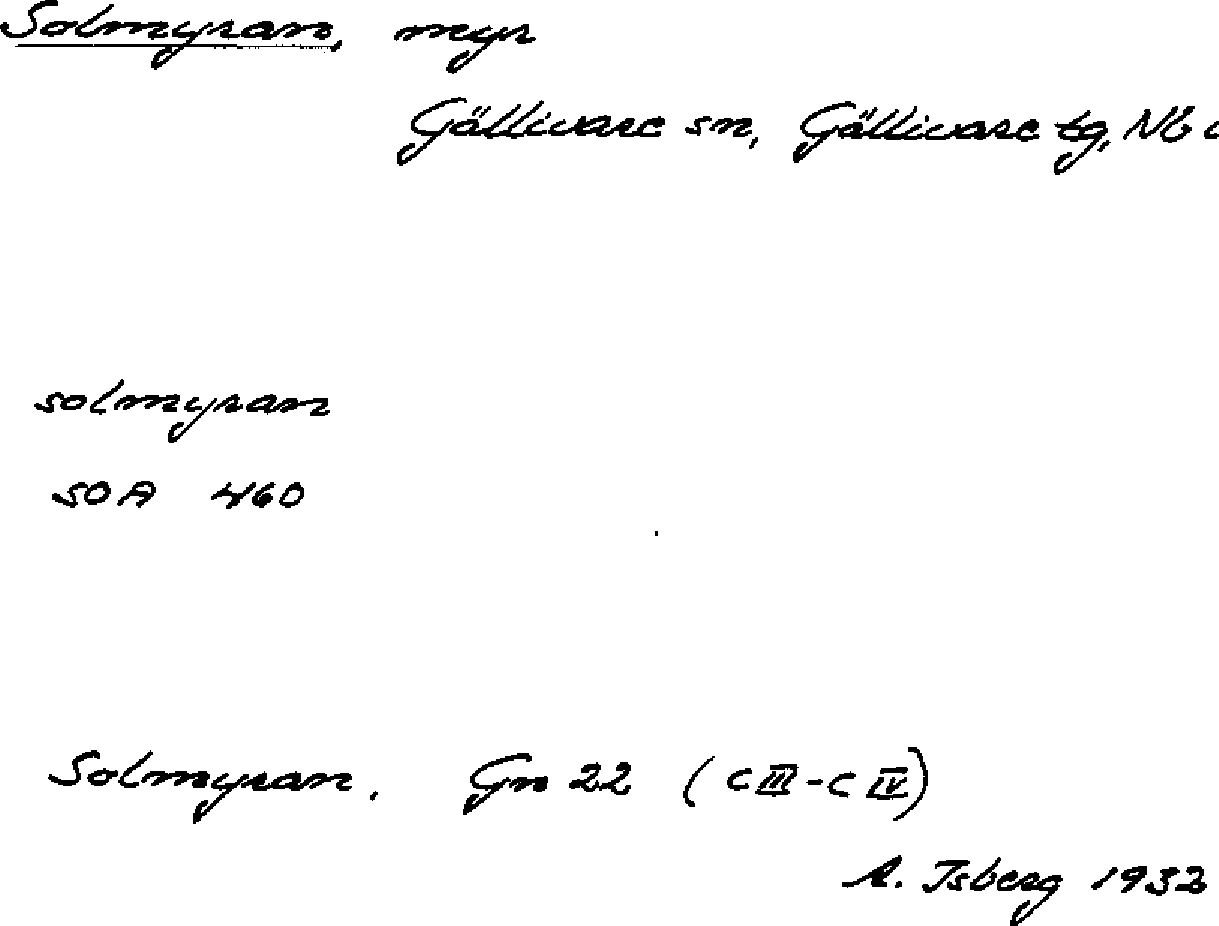 Solmyran, myr
Gällivare sn, Gällivare tg, Nb
solmyran
SOA 460
Solmyran. Gn 22 (C III - C IV)
A. Isberg 1932